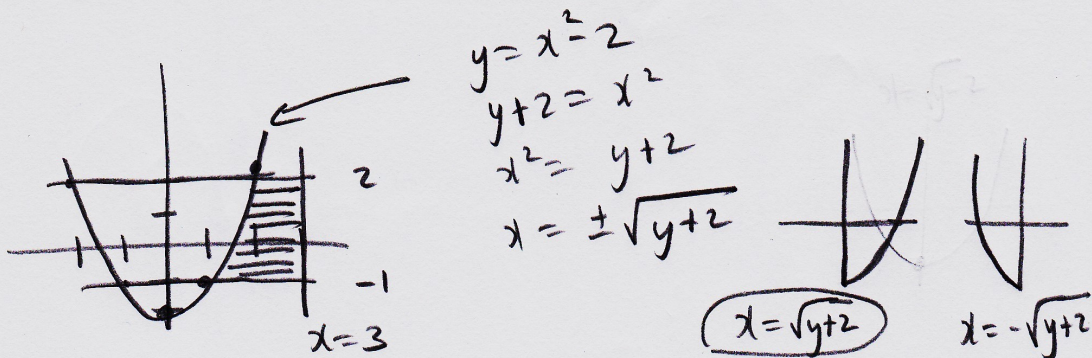 y = x² - 2
y + 2 = x²
x² = y + 2
x = ± √(y+2)
2
-1
x = 3
x = √(y+2)
x = -√(y+2)